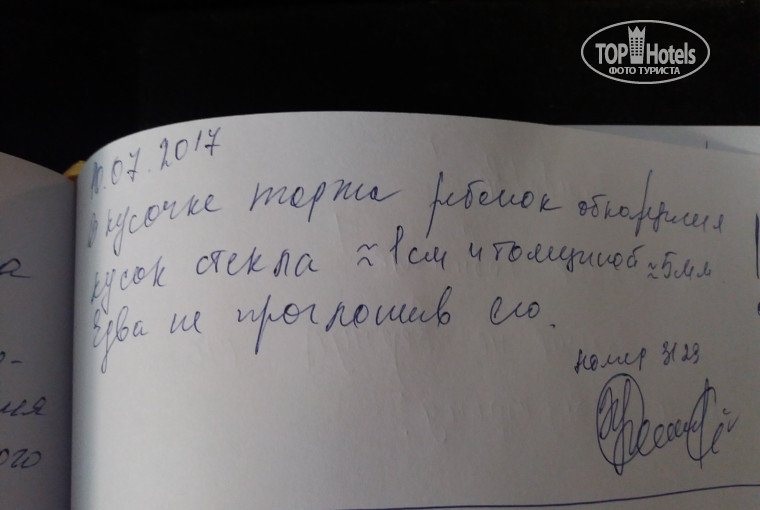 TOP Hotels
ФОТО ТУРИСТА
10.07.2017
В кусочке торта ребенок обнаружил
кусок стекла ≈ 1 см и толщиной ≈5мм
Едва не проглотив его.
номер 3123